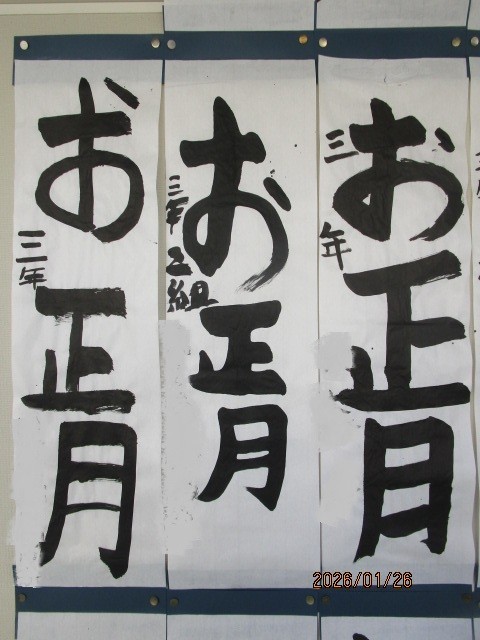 お正月
三年
お正月
三年二組
お正月
三年
2026/01/26